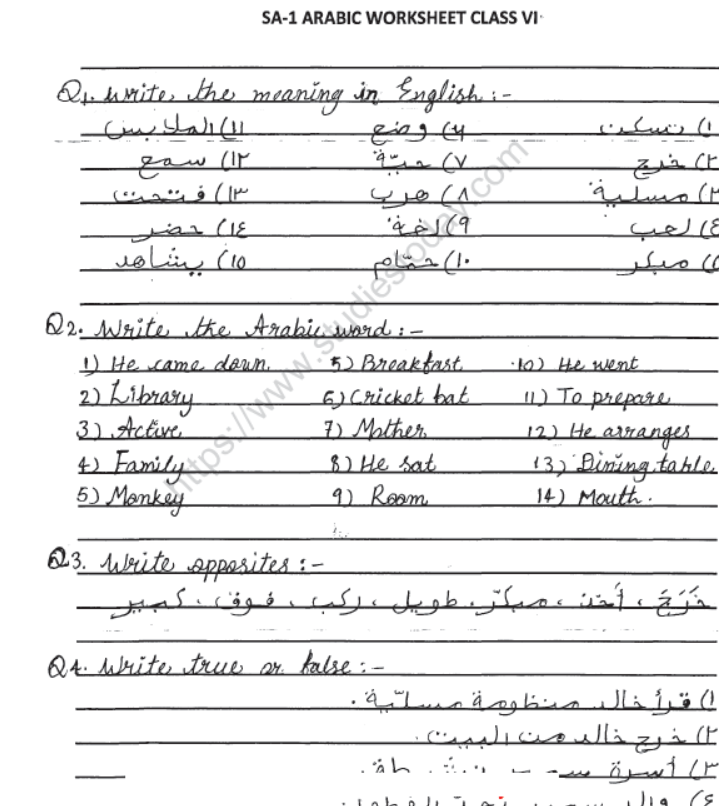 SA-1 ARABIC WORKSHEET CLASS VI
Q1. Write the meaning in English :-
١) تسكن ٦) وضع ١١) الملابس
٢) خرج ٧) حية ١٢) سمع
٣) مسلية ٨) هرب ١٣) فتحت
٤) لعب ٩) لغة ١٤) حضر
مبكر ١٠) حمّام ١٥) يشاهد
Q2. Write the Arabic word :-
1) He came down. 5) Breakfast 10) He went
2) Library 6) Cricket bat 11) To prepare
3) Active 7) Mother 12) He arranges
4) Family 8) He sat 13) Dining table
5) Monkey 9) Room 14) Mouth.
Q3. Write opposites :-
خَرَجَ ، أخذ ، مبكّر ، طويل ، ركب ، فوق ، كبير
Q4. Write true or false :-
١) قرأ خالد منظومة مسلّية .
٢) خرج خالد من البيت .
٣) أسرة
٤)
https://www.studiestoday.com